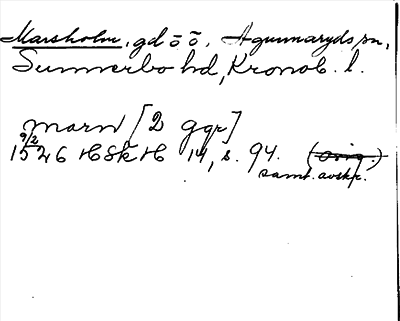 Marsholm, gd ö ö, Agunnaryds sn,
Sunnerbo hd, Kronob. l.
marn [2 ggr]
9/2
1526 HSH 14, s. 94. (orig.)
samt. avskr.